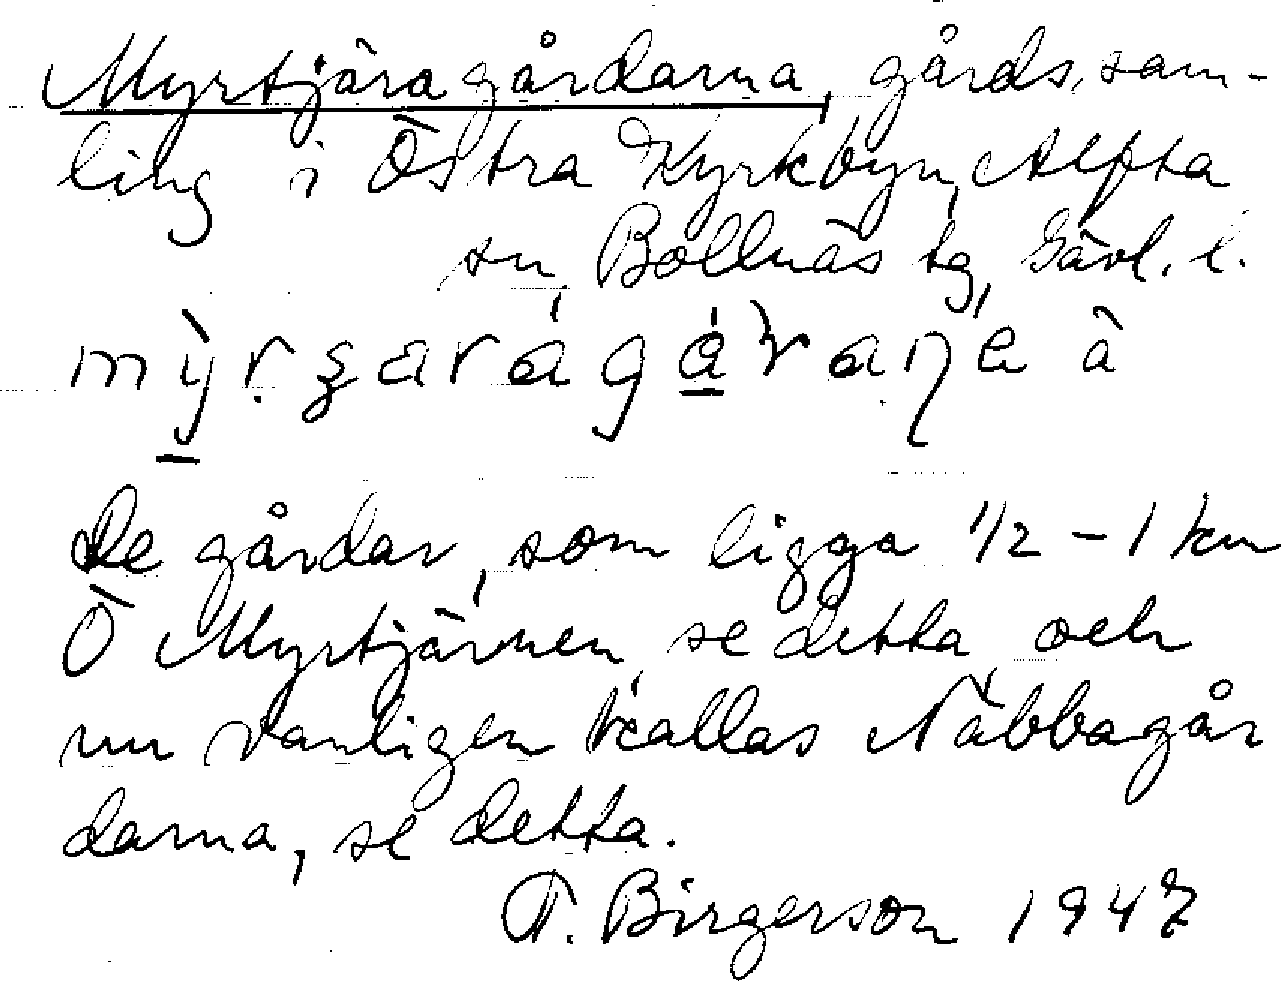 Myrtjäragårdarna, gårdssam-
ling i Östra Kyrkbyn, Alfta
sn, Bollnäs tg, Gävl. l.
de gårdar, som ligga 1/2 - 1 km
Ö Myrtjärnen, se detta, och
nu vanligen kallas Näbbagår
darna, se detta.
T. Birgerson 1947